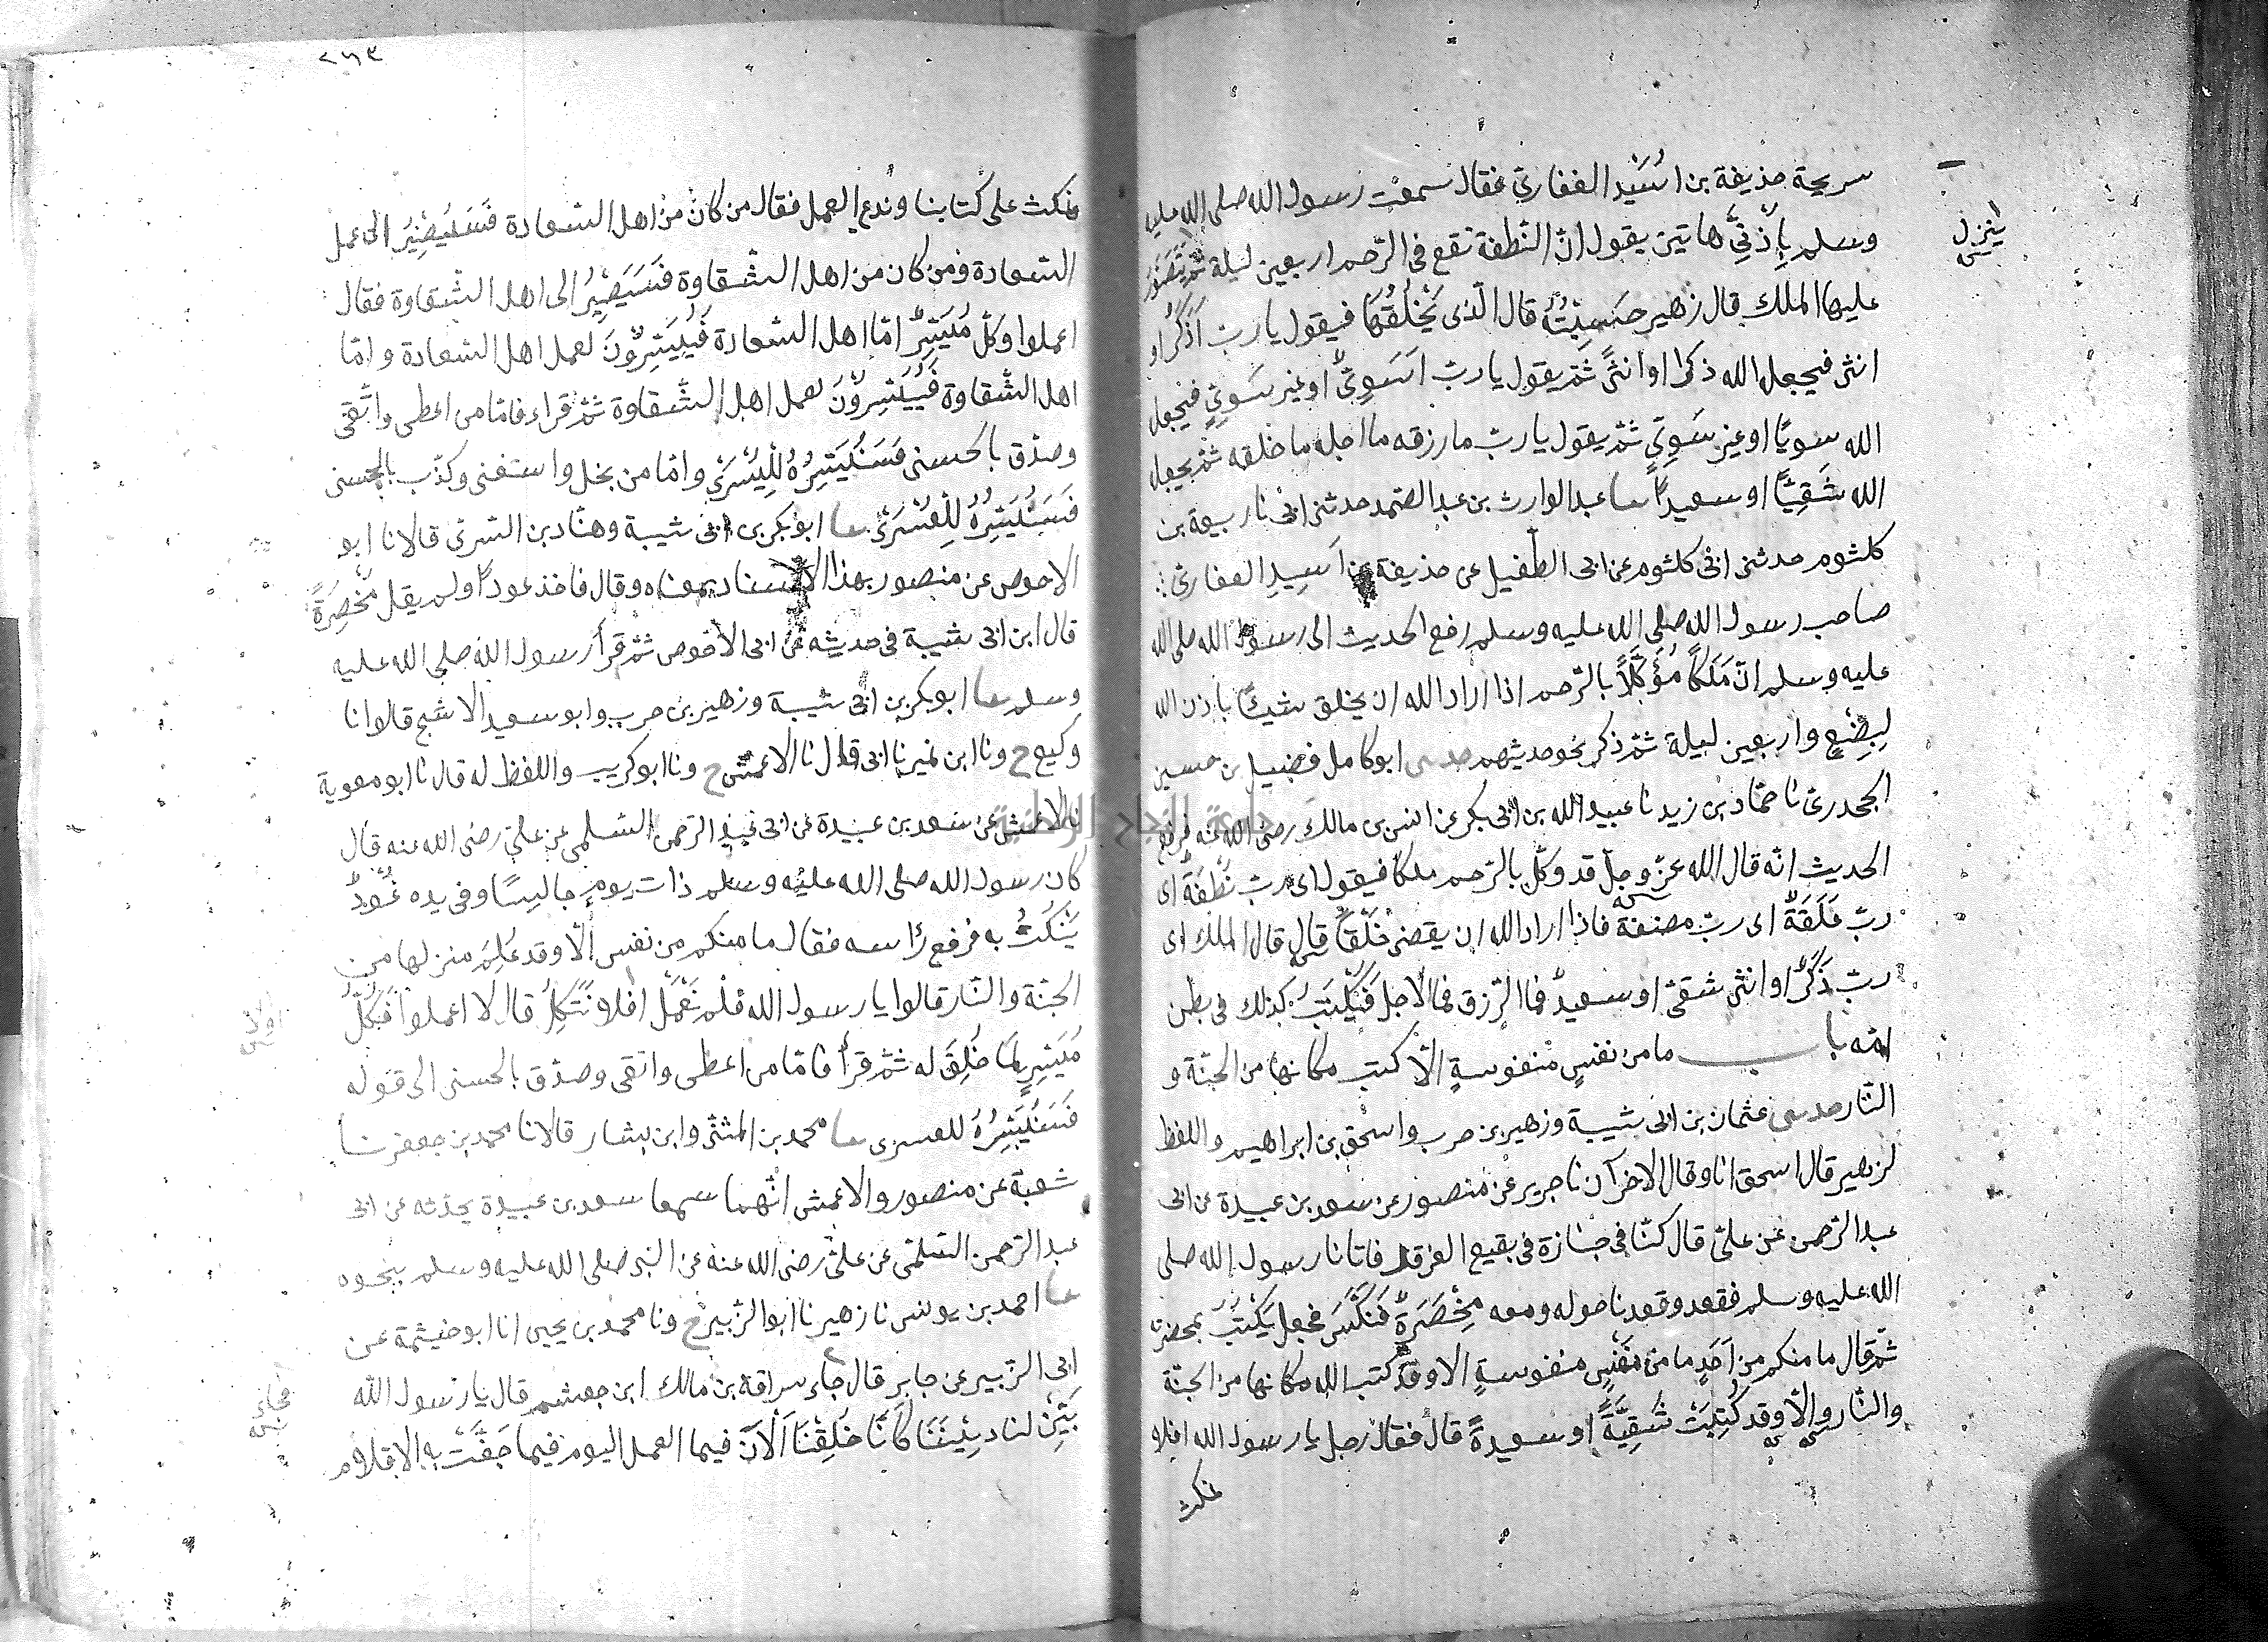 سريحة حذيفة بن اسيد الغفاري فقال سمعت رسول الله صلى الله عليه
وسلم باذنيّ هاتين يقول انّ النّطفة تقع فى الرّحم اربعين ليلة ثمّ يتصوّر
ينزل
عليها الملك قال زهير حسبته قال الّذى يخلقها فيقول يا ربّ اذكر او
انثى فيجعل الله ذكرا او انثى ثمّ يقول يا ربّ اسويّ او غير سويّ فيجعل
الله سويّا او غير سويّ ثمّ يقول يا ربّ ما رزقه ما اجله ما خلقه ثمّ يجعل
الله شقيّا او سعيدا نا عبد الوارث بن عبد الصّمد حدثنى ابى نا ربيعة بن
كلثوم حدثنى ابى كلثوم عن ابى الطّفيل عن حذيفة بن اسيد الغفارىّ
صاحب رسول الله صلى الله عليه وسلم رفع الحديث الى رسول الله صلى الله
عليه وسلم انّ ملكا مؤكّلا بالرّحم اذا اراد الله ان يخلق شيئا باذن الله
لبضع واربعين ليلة ثمّ ذكر نحو حديثهم حدثنى ابو كامل فضيل بن حسين
الجحدرىّ نا حمّاد بن زيد نا عبيد الله بن ابى بكر عن انس بن مالك رضى الله عنه فرفع
الحديث انّه قال الله عزّ وجلّ قد وكّل بالرّحم ملكا فيقول اى ربّ نطفة اى
ربّ علقة اى ربّ مضغة فاذا اراد الله ان يقضى خلقا قال قال الملك اى
ربّ ذكر او انثى شقىّ او سعيد فما الرّزق فما الاجل فيكتب كذلك فى بطن
امّه باب ما من نفس منفوسة الّا كتب مكانها من الجنّة و
النّار حدثنى عثمان بن ابى شيبة وزهير بن حرب واسحق بن ابراهيم واللفظ
لزهير قال اسحق انا وقال الاخرآن نا جرير عن منصور عن سعد بن عبيدة عن ابى
عبد الرّحمن عن علىّ قال كنّا فى جنازة فى بقيع الغرقد فاتانا رسول الله صلى
الله عليه وسلم فقعد وقعدنا حوله ومعه مخصرة فنكّس فجعل يكتب بمخصرته
ثمّ قال ما منكم من احد ما من نفس منفوسة الا وقد كتب الله مكانها من الجنّة
والنّار والّا وقد كتبت شقيّة او سعيدة قال فقال رجل يا رسول الله افلا
نمكث
٢٦٣
نمكث على كتابنا وندع العمل فقال من كان من اهل السّعادة فسيصير الى عمل
السّعادة ومن كان من اهل الشّقاوة فسيصير الى اهل الشّقاوة فقال
اعملوا وكلّ ميسّر امّا اهل السّعادة فييسّرون لعمل اهل السّعادة وامّا
اهل الشّقاوة فييسّرون لعمل اهل الشّقاوة ثمّ قراء فامّا من اعطى واتّقى
وصدّق بالحسنى فسنيسّره لليسرى وامّا من بخل واستغنى وكذّب بالحسنى
فسنيسّره للعسرى نا ابو بكر بن ابى شيبة وهنّاد بن السّرىّ قالا نا ابو
الاحوص عن منصور بهذا الاسناد بمعناه وقال فاخذ عودا ولم يقل مخصرة
قال ابن ابى شيبة فى حديثه عن ابى الاحوص ثمّ قرأ رسول الله صلى الله عليه
وسلم نا ابو بكر بن ابى شيبة وزهير بن حرب وابو سعيد الاشج قالوا نا
وكيع ح ونا ابن نمير نا ابى قال نا الاعمش ح ونا ابو كريب واللفظ له قال نا ابو معوية
نا الاعمش عن سعد بن عبيدة عن ابى عبد الرّحمن السّلمى عن علىّ رضى الله عنه قال
كان رسول الله صلى الله عليه وسلم ذات يوم جالسا وفى يده عود
ينكت به فرفع رأسه فقال ما منكم من نفس الّا وقد علم منزلها من
الجنّة والنّار قالوا يا رسول الله فلم نعمل افلا نتّكل قال لا اعملوا فكلّ
اولا
ميسّر لما خلق له ثمّ قرأ فامّا من اعطى واتقى وصدّق بالحسنى الى قوله
فسنيسّره للعسرى نا محمد بن المثنّى وابن بشار قالا نا محمد بن جعفر نا
شعبة عن منصور والاعمش انّهما سمعا سعد بن عبيدة يحدّثه عن ابى
عبد الرّحمن السّلمّى عن علىّ رضى الله عنه عن النبى صلى الله عليه وسلم بنحوه
نا احمد بن يونس نا زهير نا ابو الزّبير ح ونا محمد بن يحيى انا ابو خيثمة عن
ابى الزّبير عن جابر قال جاء سراقة بن مالك ابن جعشم قال يا رسول الله
فجاء
بيّن لنا ديننا كانّا خلقنا الآن فيما العمل اليوم فيما جفّت به الاقلام